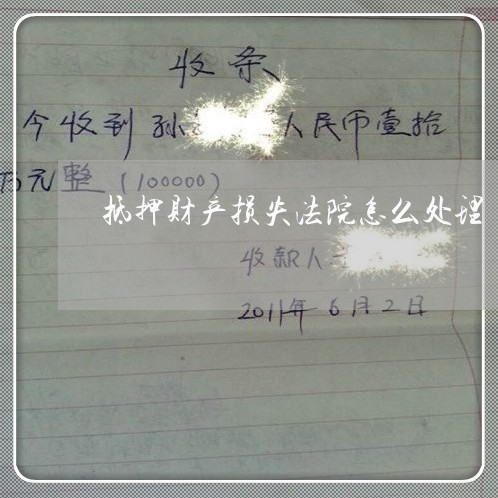 收条
今收到孙 人民币壹拾
万元整(100000)
抵押财产损失法院怎么处理
收款人
2011年6月2日